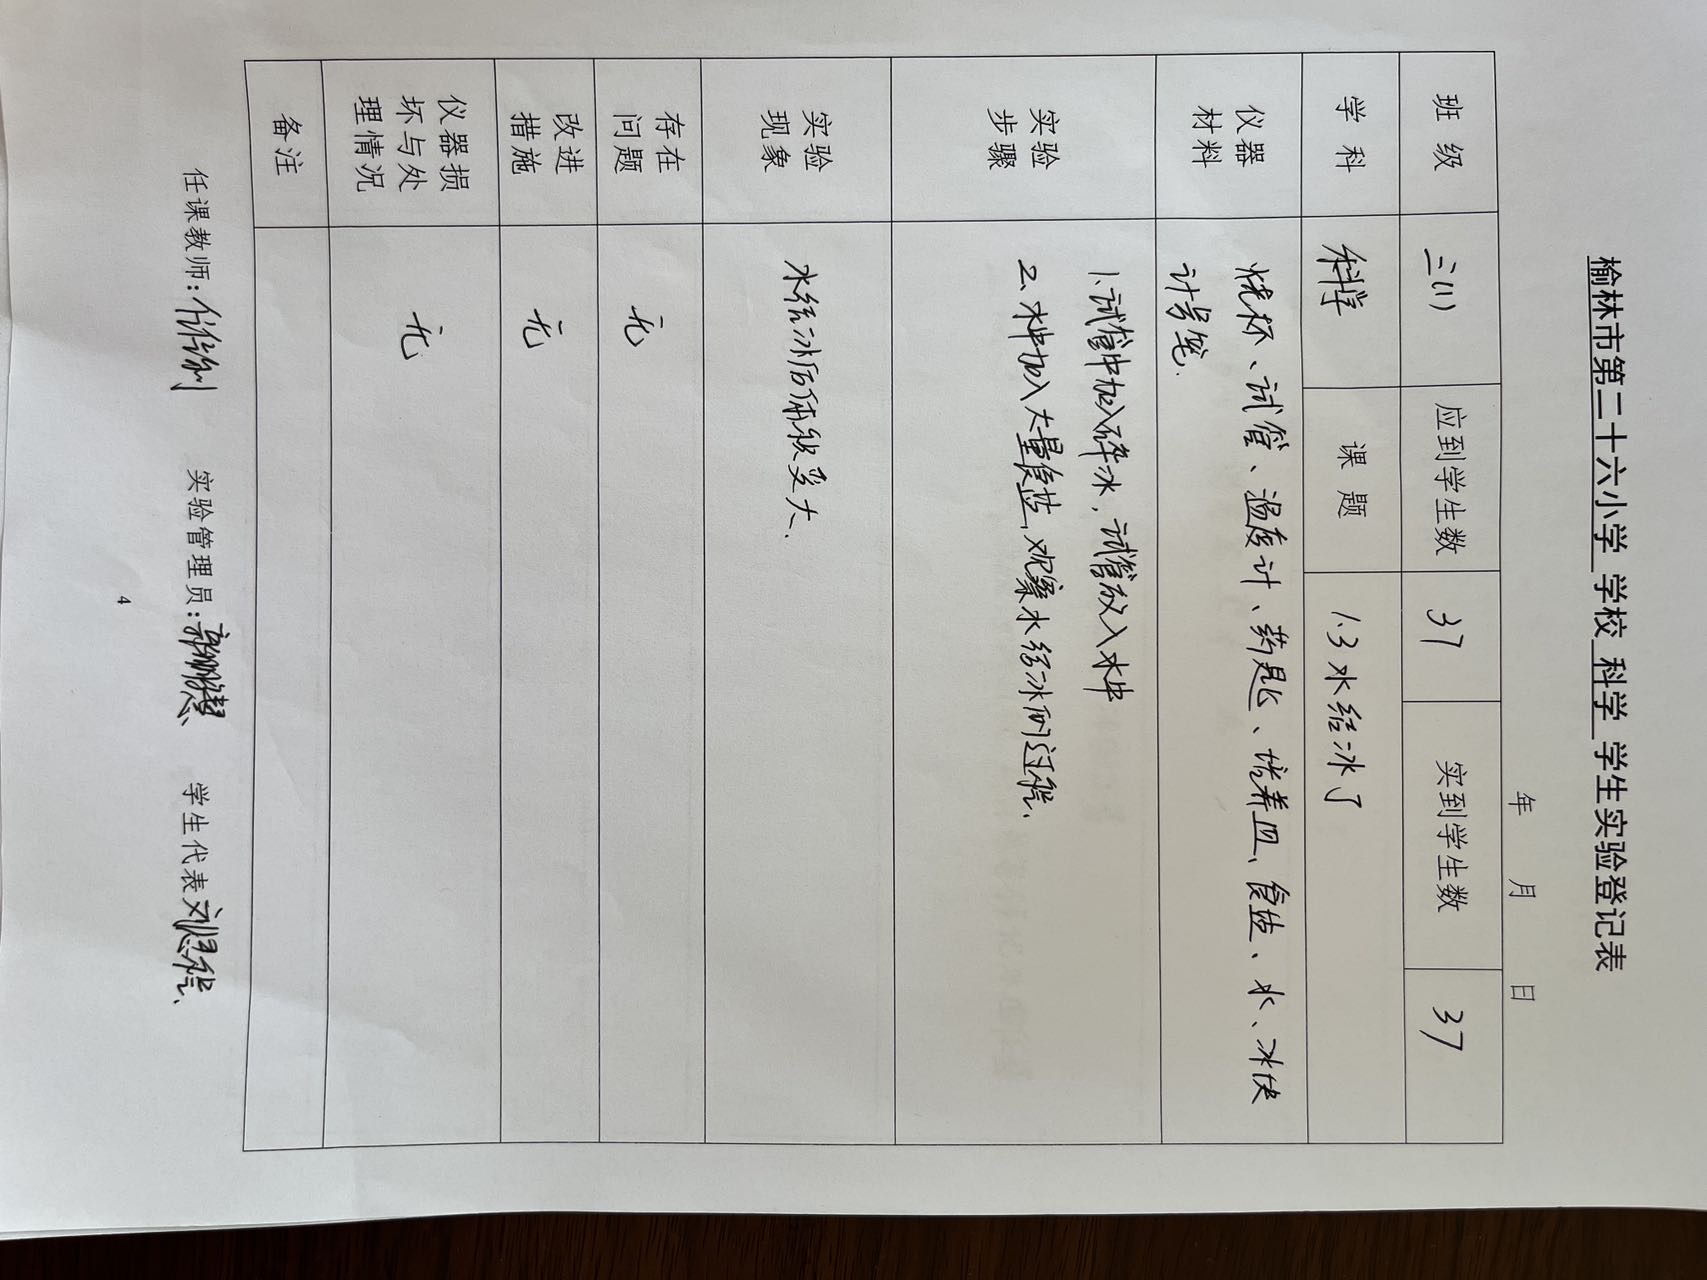 榆林市第二十六小学 学校 科学 学生实验登记表
年 月 日
班级 三(1) 应到学生数 37 实到学生数 37
学科 科学 课题 1.3水结冰了
仪器材料 烧杯、试管、温度计、药匙、培养皿、食盐、水、冰块
计号笔.
实验步骤 1.试管中加入碎冰,试管放入水中
2、冰中加入大量食盐,观察水结冰的过程、
实验现象 水结冰后体积变大、
存在问题 无
改进措施 无
仪器损坏与处理情况 无
备注
任课教师: 实验管理员: 学生代表
4